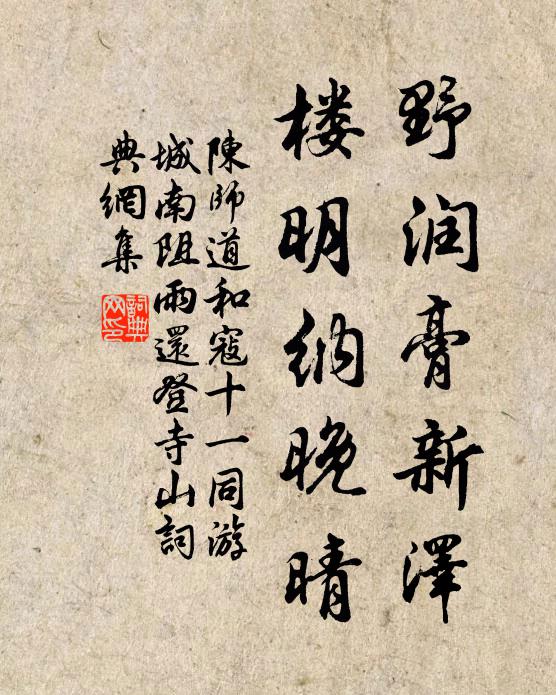 野润膏新澤
楼明纳晚晴
陳師道和寇十一同游
城南阻雨還登寺山詞
典網集
詞典
网印